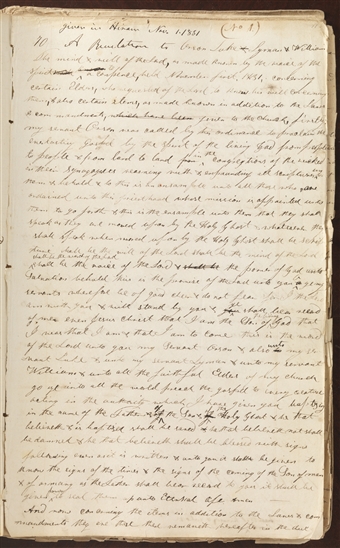 given in Hiram Nov. 1. 1831 (No 1)
70 A Revelation to Orson Luke & Lyman & William
the mind & will of the Lord, as made known by the voice of the
Spirit a conference held November first, 1831, concerning
certain Elders, who requested of the Lord to know his will concerning
them, & also certain items, as made known in addition to the Laws
& commandments, given to the Church, firstly,
my servant Orson was called by his ordinance to proclaim the
everlasting Gospel by the Spirit of the living God from people
to people & from land to land in the congregations of the wicked
in their Synagogues reasoning with & expounding all scriptures unto
them & behold & lo this is an ensample unto all those who were
ordained unto this priesthood whose mission is appointed unto
them to go forth & this is the ensample unto them that they shall
speak as they are moved upon by the Holy Ghost & whatsoever they
shall speak when moved upon by the Holy Ghost shall be
shall be the will of the Lord shall be the mind of the Lord
shall be the word of the Lord
shall be the voice of the Lord & the power of God unto
Salvation behold this is the promise of the Lord unto you my
servants wherefore be of good cheer & do not fear for I the Lord
am with you & will stand by you & shall bear record
of me even Jesus Christ that I am the Son of God that
I was that I am & that I am to come this is the word
of the Lord unto you my Servant Orson & also unto my ser
vant Luke & unto my servant Lyman & unto my servant
William & unto all the faithful Elders of my church
go ye into all the world preach the gospel to every creature
acting in the authority which I have given you baptizing
in the name of the Father & of the Son & of the Holy Ghost & he that
believeth & is baptized shall be saved & he that believeth not shall
be damned & he that believeth shall be blessed with signs
following even as it is written & unto you it shall be given to
know the signs of the times & the signs of the coming of the Son of man
& of as many as the Father shall bear record to you it shall be
given to seal them up unto Eternal life Amen
And now concerning the items in addition to the Laws & com
mandments they are these there remaineth hereafter in the due